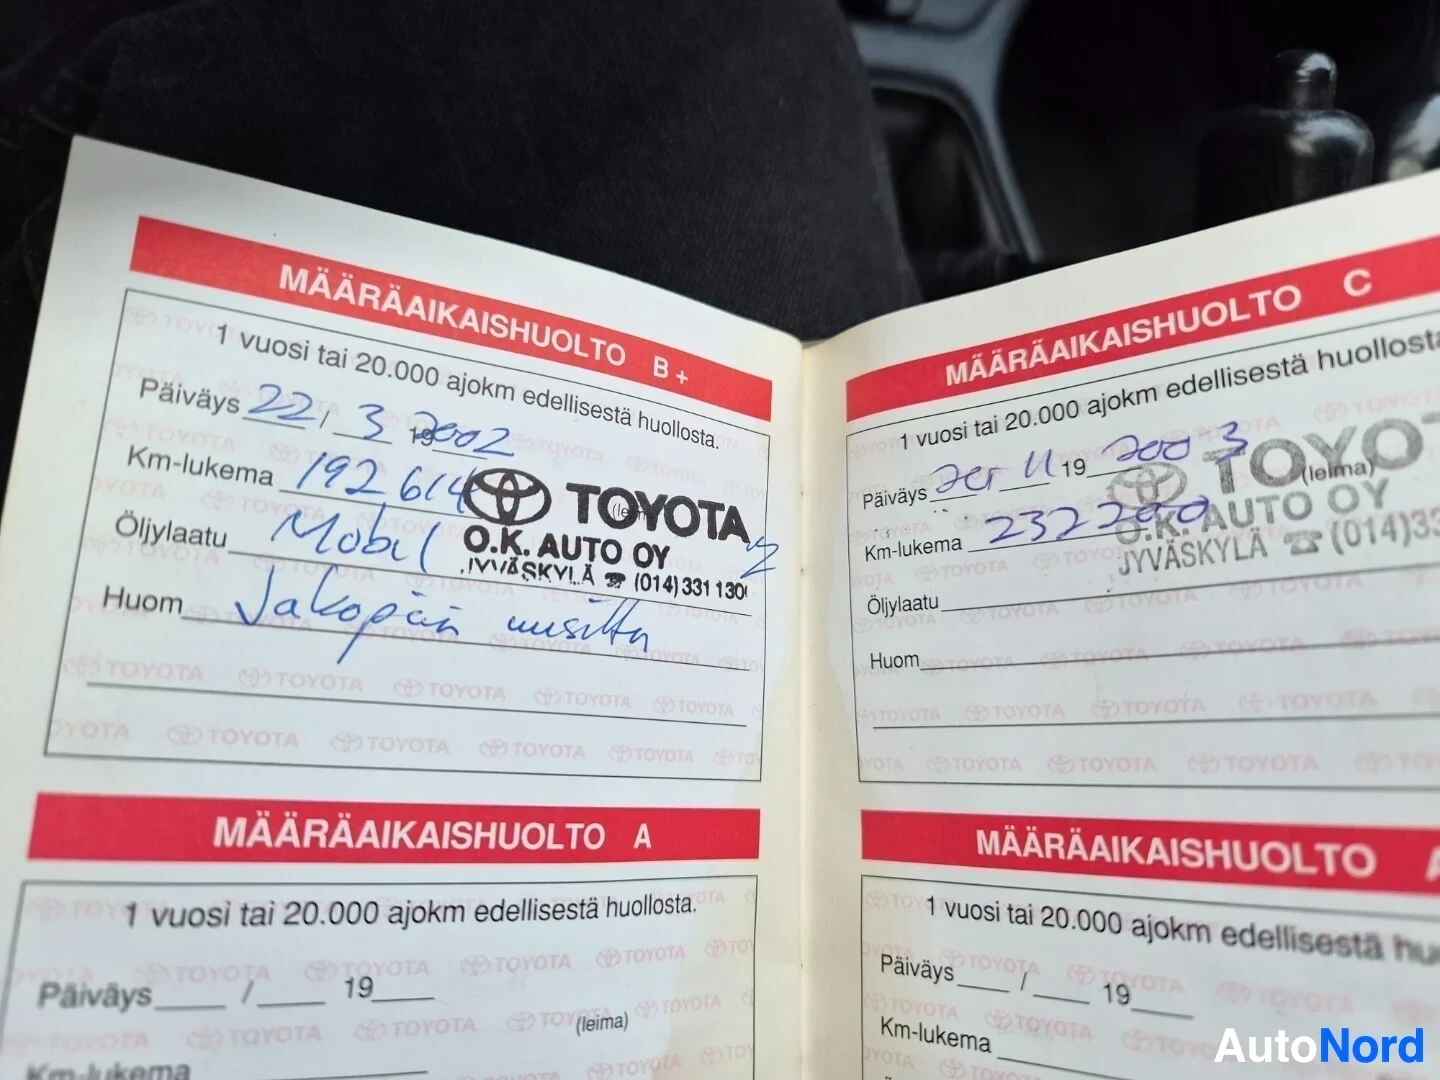 MÄÄRÄAIKAISHUOLTO B+
1 vuosi tai 20.000 ajokm edellisestä huollosta.
Päiväys 22 / 3 19 2002
Km-lukema 192 614
Öljylaatu Mobil
Huom Jakopään uusittu
TOYOTA
O.K. AUTO OY
JYVÄSKYLÄ ☎ (014) 331 130
MÄÄRÄAIKAISHUOLTO A
1 vuosi tai 20.000 ajokm edellisestä huollosta.
Päiväys / 19
(leima)
Km-lukema
MÄÄRÄAIKAISHUOLTO C
1 vuosi tai 20.000 ajokm edellisestä huollosta
Päiväys 11 19 2003
(leima)
Km-lukema 232200
Öljylaatu
Huom
TOYOT
O.K. AUTO OY
JYVÄSKYLÄ ☎ (014) 33
MÄÄRÄAIKAISHUOLTO
1 vuosi tai 20.000 ajokm edellisestä huo
Päiväys / 19
Km-lukema
AutoNord